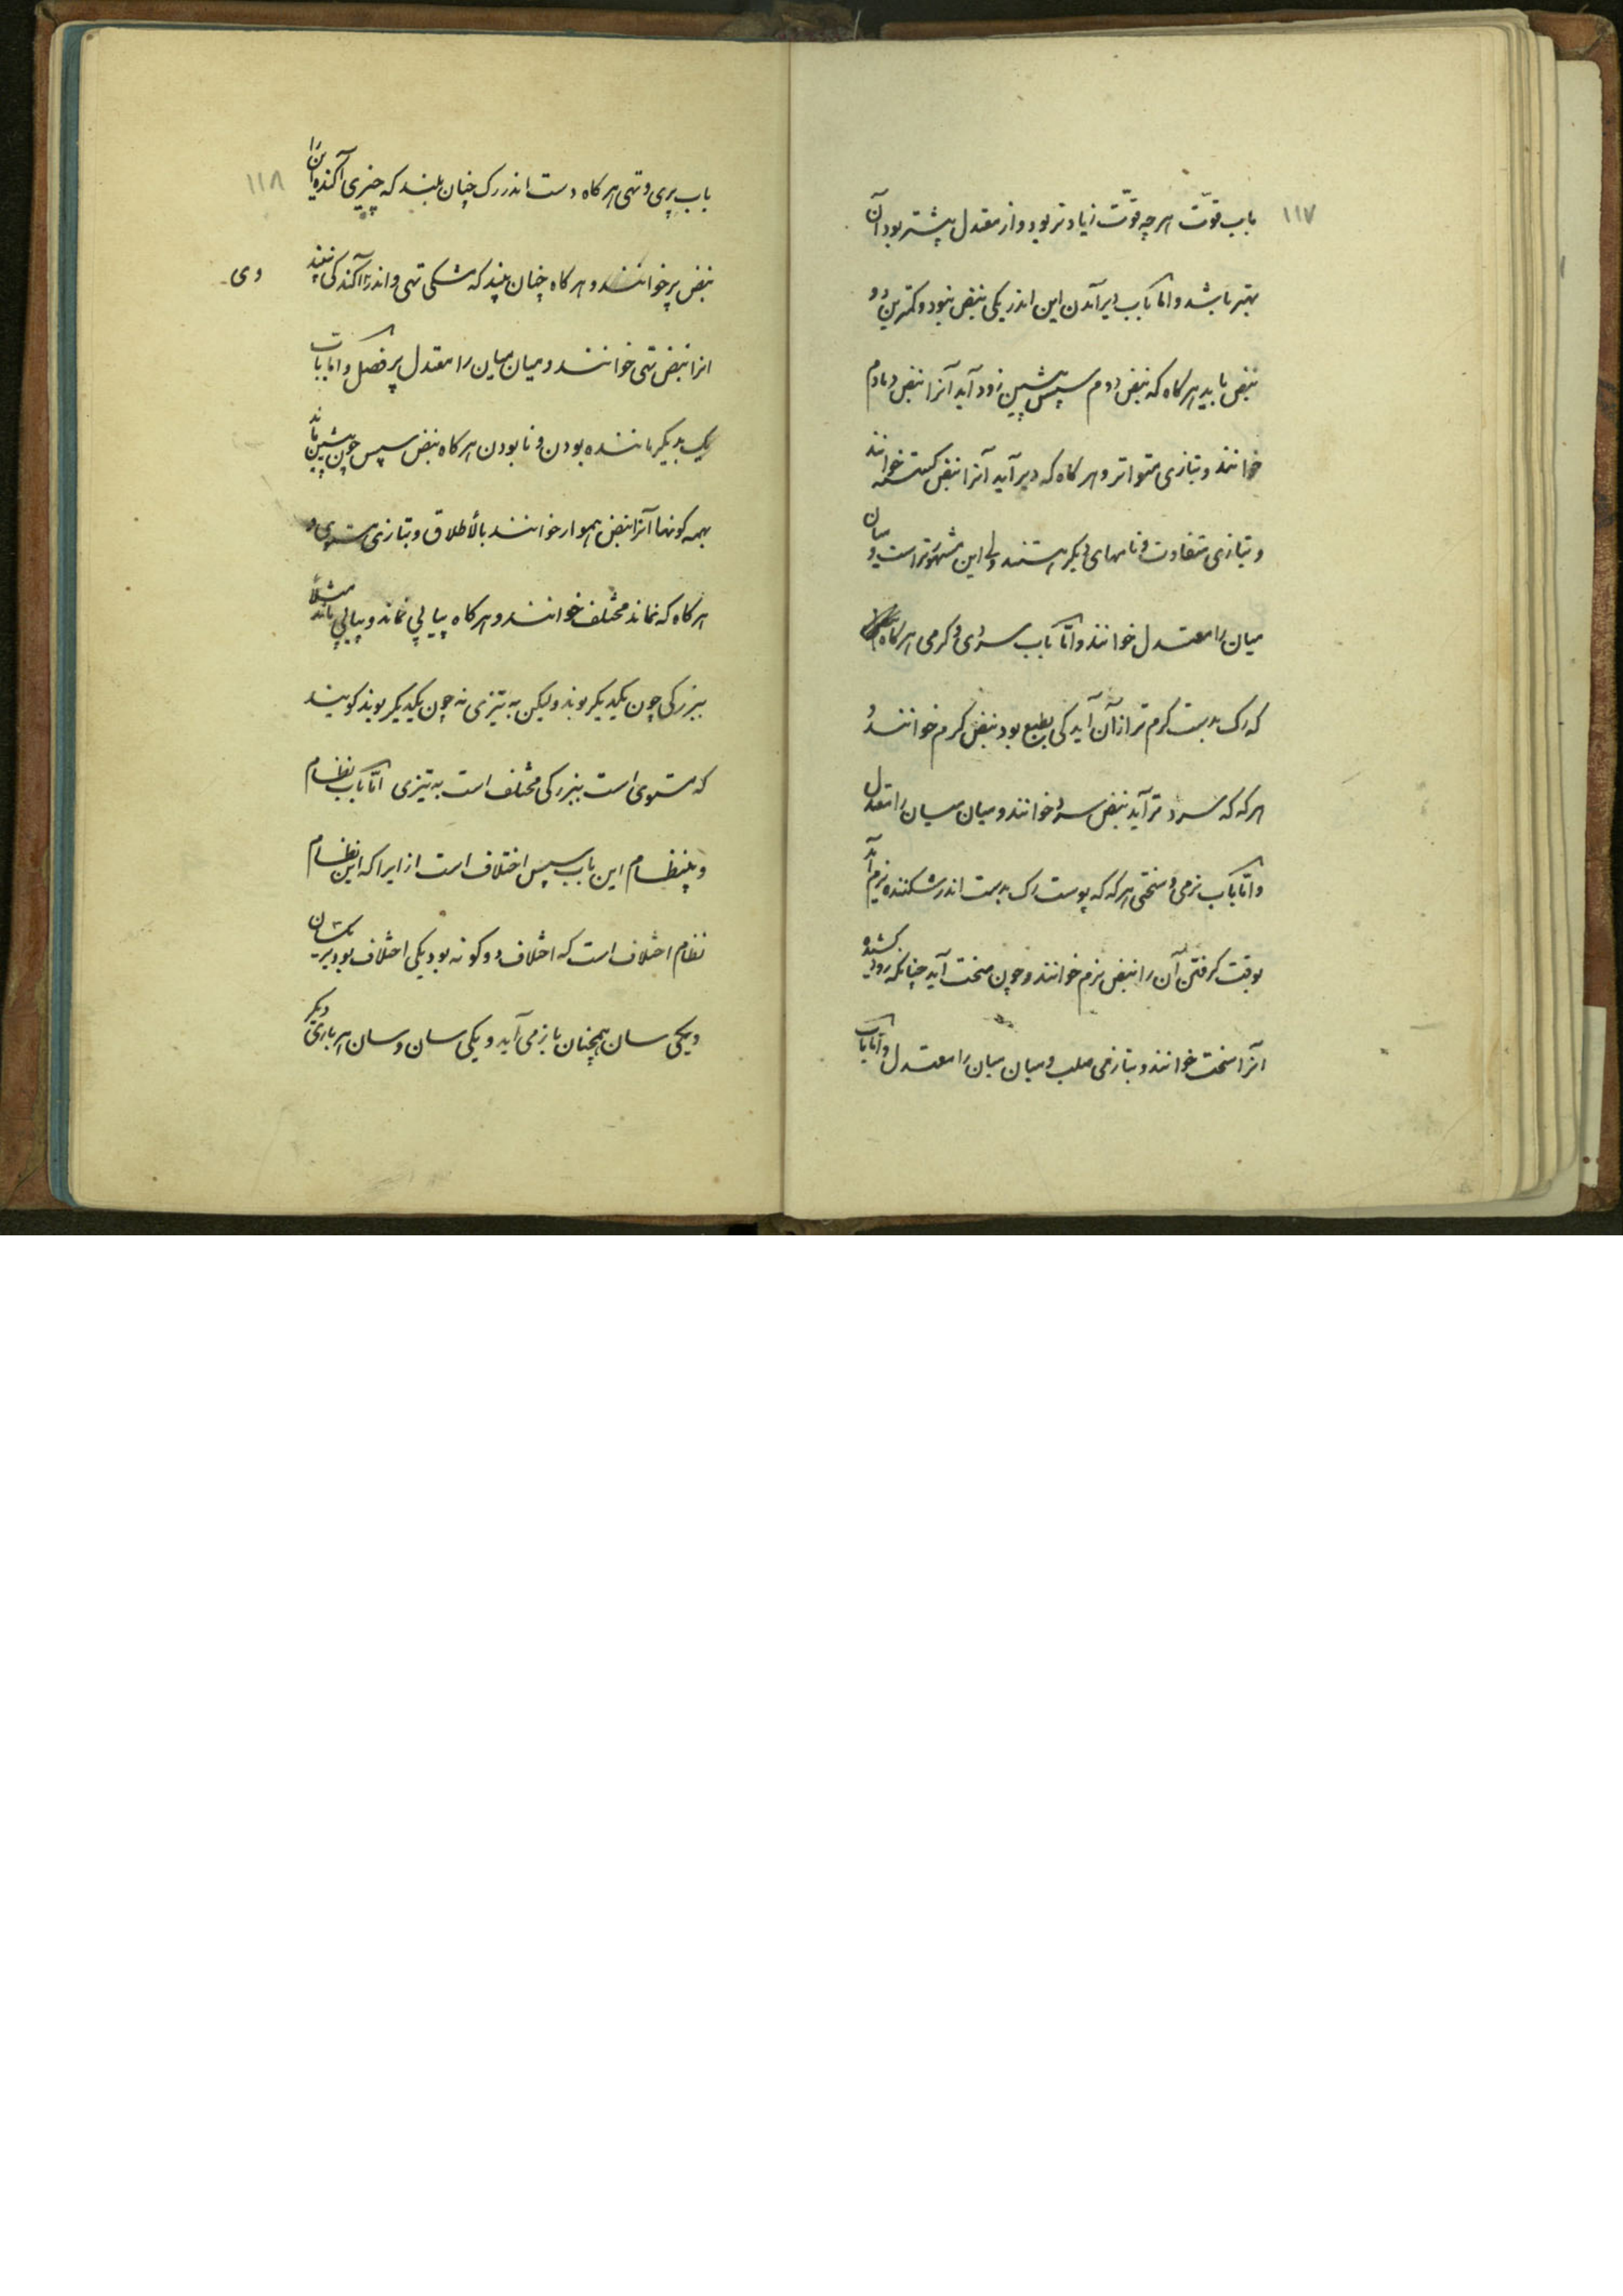 ۱۱۷
باب قوّت هرچه قوّت زیادتر بود و از معتدل بیشتر بود آن
بهتر باشد و اما باب دیر آمدن این اندر یکی نبض نبود و کمترین دو
نبض باید هرکاه که نبض دوم سپس پیشین زود آید آنرا نبض دمادم
خوانند و بتازی متواتر و هرکاه که دیر آید آنرا نبض کسسته خوانند
و بتازی متفاوت و نامهای دیکر هستند ولی این مشهورتر است و میان
میان را معتدل خوانند و امّا باب سردی و کرمی هرکاه
که رک بدست کرم تر از آن آید کی بطبع بود نبض کرم خوانند و
هرکه که سرد تر آید نبض سرد خوانند و میان میان را معتدل
و امّا باب نرمی و سختی هرکه که پوست رک بدست اندر شکننده نرم آید
بوقت کرفتن آن را نبض نرم خوانند و چون سخت آید چنانکه رود کشیده
آنرا سخت خوانند و بتازی صلب و میان میان را معتدل و امّا باب
۱۱۸
باب پری و تهی هرکاه دست اندر رک چنان بیند که چیزی آکنده این را
نبض پر خوانند و هرکاه چنان بیند که مشکی تهی و اندر آکندکی نبیند
وی
انرا نبض تهی خوانند و میان میان را معتدل پر فصل و اما باب
یک بدیکر ماننده بودن و نابودن هرکاه نبض سپس چون پیشین ماند
بهمه کونها آنرا نبض هموار خوانند بالأطلاق و بتازی مستوی و
هرکاه که نماند مختلف خوانند و هرکاه پیاپی نماند و پیاپی ماند مثلاً
ببزرکی چون یکدیکر بوند ولیکن به تیزی نه چون یکدیکر بوند کویند
که مستوی است ببزرکی مختلف است به تیزی امّا باب نظام
و بینظام این باب سپس اختلاف است از ایرا که این نظام
نظام اختلاف است که اختلاف دو کونه بود یکی اختلاف بود بر یکسان
و یکی سان همچنان باز می آید و یکی سان و سان هر باری دیکر